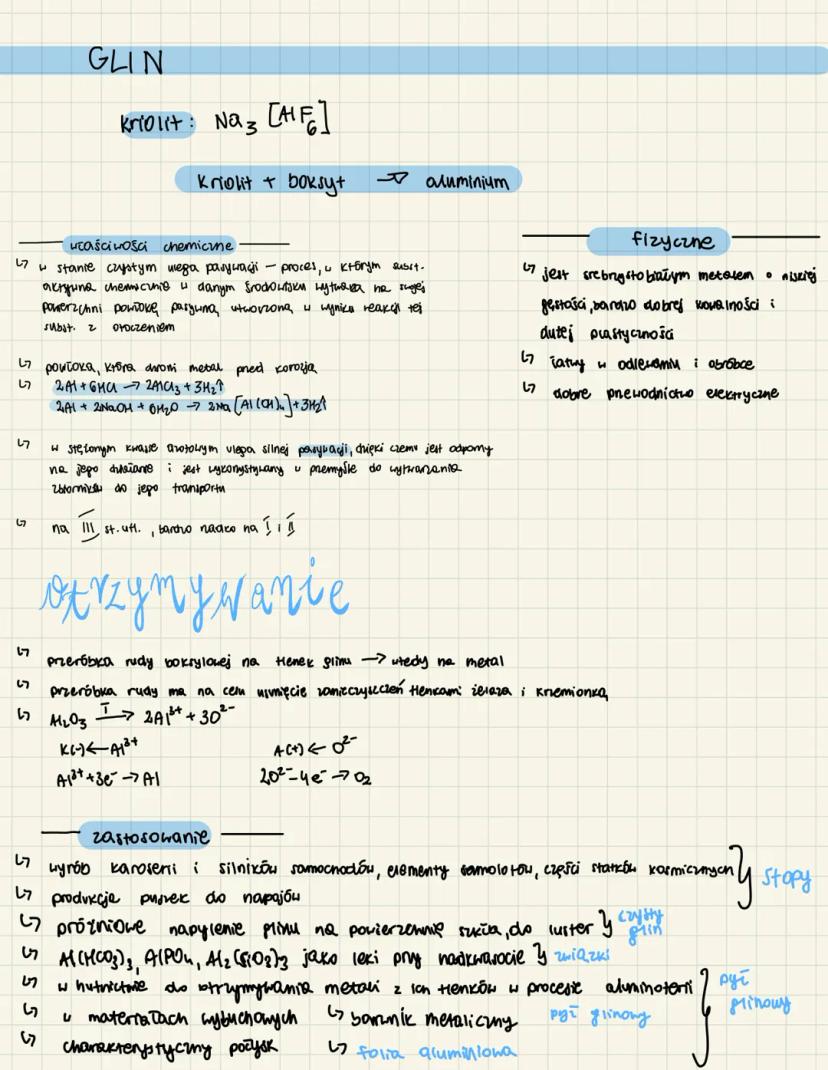 GLIN
kriolit: Na3 [AlF6]
kriolit + boksyt → aluminium
właściwości chemiczne
↳ w stanie czystym ulega pasywacji – proces, w którym subst.
aktywna chemicznie w danym środowisku wytwarza na swojej
powierzchni powłokę pasywną, utworzoną w wyniku reakcji tej
subst. z otoczeniem
↳ powłoka, która chroni metal przed korozją
↳ 2Al + 6HCl → 2AlCl3 + 3H2↑
2Al + 2NaOH + 6H2O → 2Na [Al(OH)4] + 3H2↑
↳ w stężonym kwasie azotowym ulega silnej pasywacji, dzięki czemu jest odporny
na jego działanie i jest wykorzystywany w przemyśle do wytwarzania
zbiorników do jego transportu
↳ na III st. utl., bardzo rzadko na I i II
fizyczne
↳ jest srebrzystobiałym metalem o niskiej
gęstości, bardzo dobrej kowalności i
dużej plastyczności
↳ łatwy w odlewaniu i obróbce
↳ dobre przewodnictwo elektryczne
otrzymywanie
↳ przeróbka rudy boksytowej na tlenek glinu → wtedy na metal
↳ przeróbka rudy ma na celu usunięcie zanieczyszczeń tlenkami żelaza i krzemionką
↳ Al2O3 T→ 2Al³⁺ + 3O²⁻
K(-) ← Al³⁺ A(+) ← O²⁻
Al³⁺ + 3e⁻ → Al 2O²⁻ – 4e⁻ → O2
zastosowanie
↳ wyrób karoserii i silników samochodów, elementy samolotów, części statków kosmicznych } stopy
↳ produkcja puszek do napojów
↳ próżniowe napylenie glinu na powierzchnię szkła, do luster } czysty glin
↳ Al(HCO3)3, AlPO4, Al2(SiO3)3 jako leki przy nadkwasocie } związki
↳ w hutnictwie do otrzymywania metali z ich tlenków w procesie aluminotermii } pył glinowy
↳ w materiałach wybuchowych ↳ barwnik metaliczny pył glinowy
↳ charakterystyczny połysk ↳ folia aluminiowa